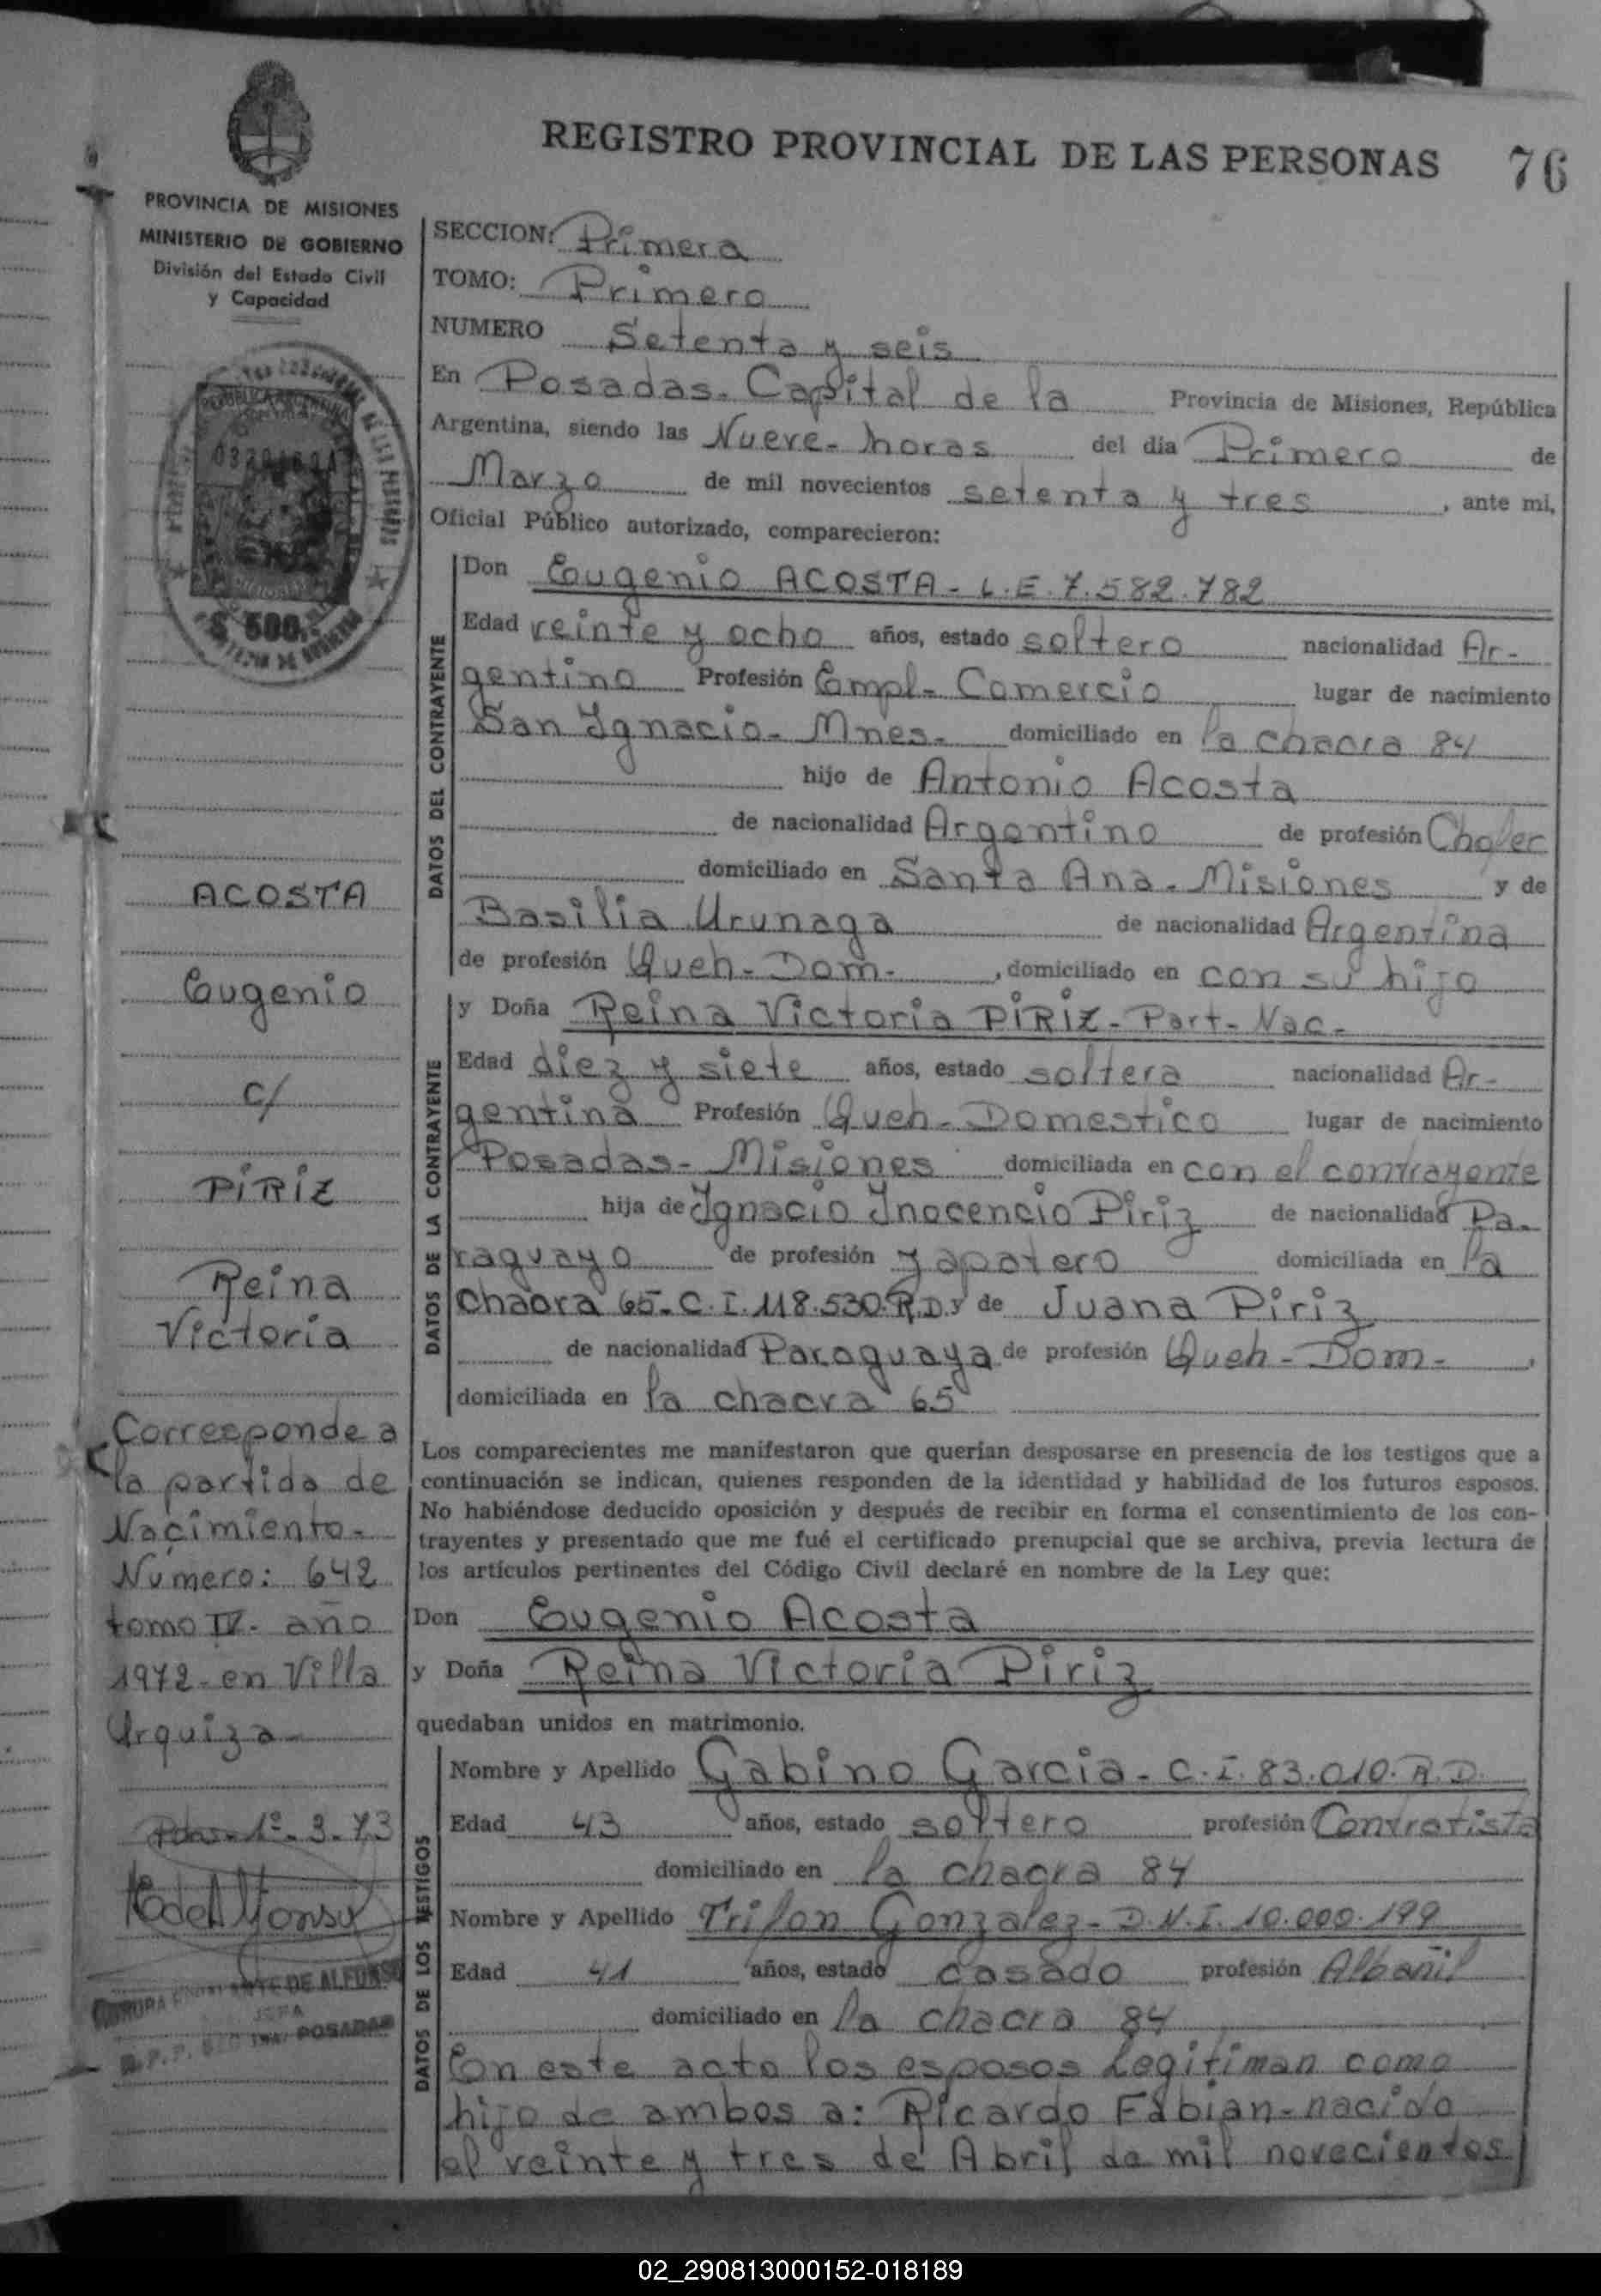 REGISTRO PROVINCIAL DE LAS PERSONAS 76
PROVINCIA DE MISIONES
MINISTERIO DE GOBIERNO
División del Estado Civil
y Capacidad
$ 500
ACOSTA
Eugenio
c/
PIRIZ
Reina
Victoria
Corresponde a
la partida de
Nacimiento-
Número: 642
tomo IV- año
1972- en Villa
Urquiza
Pdas- 1º- 3- 73
DE ALFONSO
JEFA
POSADAS
SECCION: Primera
TOMO: Primero
NUMERO Setenta y seis
En Posadas- Capital de la Provincia de Misiones, República
Argentina, siendo las Nueve- horas del día Primero de
Marzo de mil novecientos setenta y tres, ante mi,
Oficial Público autorizado, comparecieron:
DATOS DEL CONTRAYENTE
Don Eugenio ACOSTA- L.E. 7.582.782
Edad veinte y ocho años, estado soltero nacionalidad Ar-
gentino Profesión Empl- Comercio lugar de nacimiento
San Ignacio- Mnes- domiciliado en la chacra 84
hijo de Antonio Acosta
de nacionalidad Argentino de profesión Chofer
domiciliado en Santa Ana- Misiones y de
Basilia Urunaga de nacionalidad Argentina
de profesión Queh- Dom-, domiciliado en con su hijo
DATOS DE LA CONTRAYENTE
y Doña Reina Victoria PIRIZ- Part- Nac-
Edad diez y siete años, estado soltera nacionalidad Ar-
gentina Profesión Queh- Domestico lugar de nacimiento
Posadas- Misiones domiciliada en con el contrayente
hija de Ignacio Inocencio Piriz de nacionalidad Pa-
raguayo de profesión zapatero domiciliada en la
Chacra 65- C.I. 118.530. R.D. y de Juana Piriz
de nacionalidad Paraguaya de profesión Queh- Dom-,
domiciliada en la chacra 65
Los comparecientes me manifestaron que querían desposarse en presencia de los testigos que a
continuación se indican, quienes responden de la identidad y habilidad de los futuros esposos.
No habiéndose deducido oposición y después de recibir en forma el consentimiento de los con-
trayentes y presentado que me fué el certificado prenupcial que se archiva, previa lectura de
los artículos pertinentes del Código Civil declaré en nombre de la Ley que:
Don Eugenio Acosta
y Doña Reina Victoria Piriz
quedaban unidos en matrimonio.
DATOS DE LOS TESTIGOS
Nombre y Apellido Gabino Garcia- C.I. 83.010. R.D.
Edad 43 años, estado soltero profesión Contratista
domiciliado en la chacra 84
Nombre y Apellido Trifon Gonzalez- D.N.I. 10.000.199
Edad 41 años, estado casado profesión Albañil
domiciliado en la chacra 84
En este acto los esposos Legitiman como
hijo de ambos a: Ricardo Fabian- nacido
el veinte y tres de Abril de mil novecientos
02_290813000152-018189